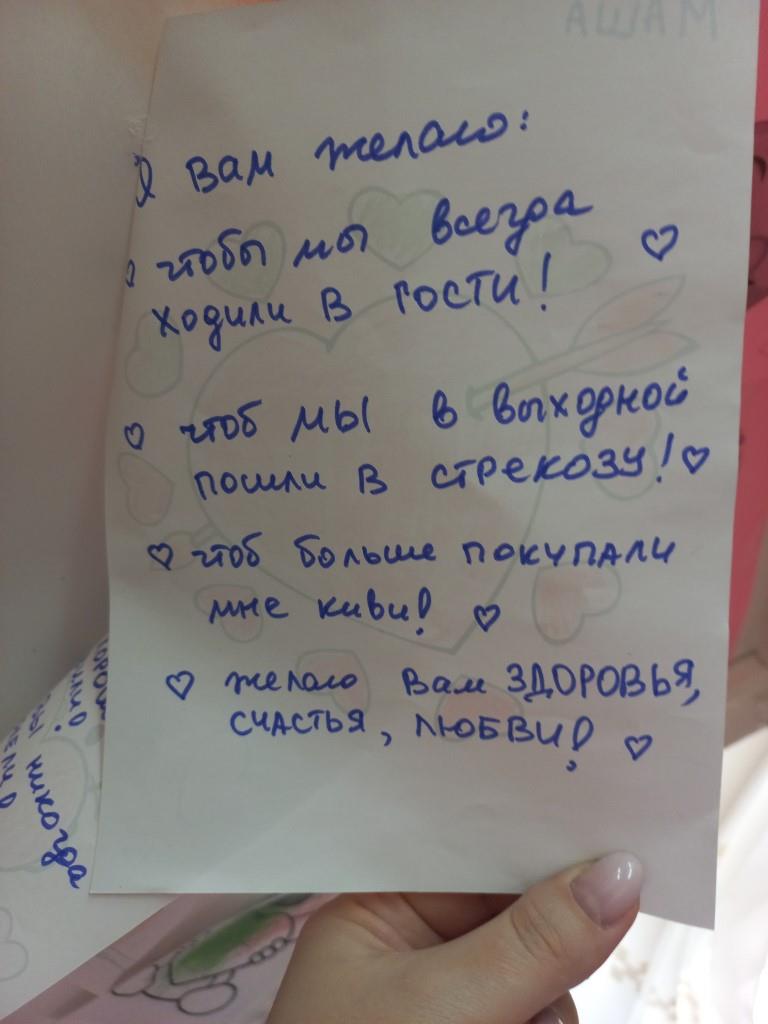 МАША
Я вам желаю:
чтобы мы всегда
ходили в гости!
чтоб мы в выходной
пошли в стрекозу!
чтоб больше покупали
мне киви!
желаю вам ЗДОРОВЬЯ,
СЧАСТЬЯ, ЛЮБВИ!
никогда